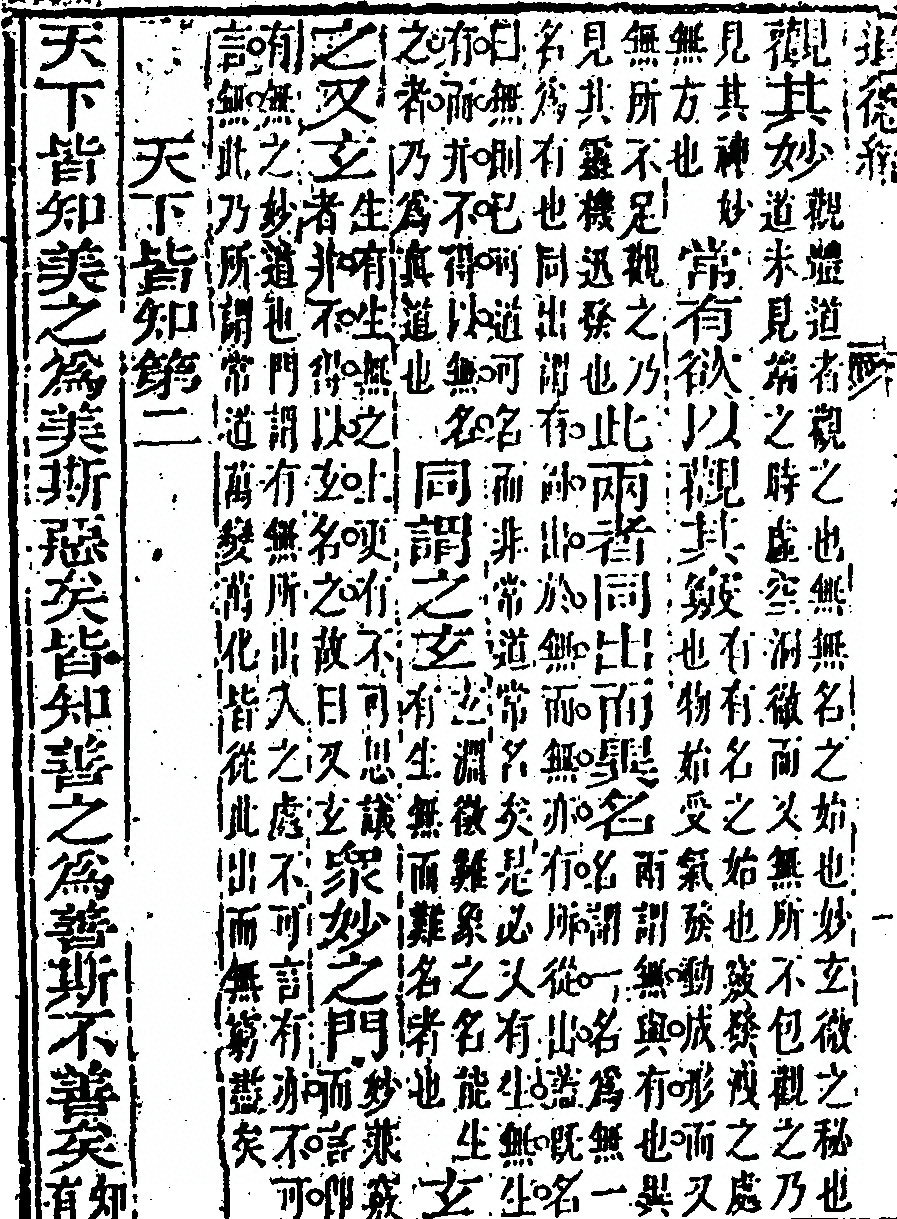 道德經
觀其妙
觀體道者觀之也無無名之始也妙玄微之秘也
道未見端之時虛空洞徹而以無所不包觀之乃
見其神妙
無方也
常有欲以觀其竅
有有名之始也竅發洩之處
也物始受氣發動成形而又
無所不足觀之乃
見其靈機迅發也
此兩者同出而異名
兩謂無與有也異
名謂一名為無一
名為有也同出謂有出於無而無亦有所從出蓋既名
曰無則已可道可名而非常道常名矣是必以有生無生
有而并不得以無名
之者乃為真道也
同謂之玄
玄淵微難象之名能生
有生無而難名者也
玄
之又玄
生有生無之上更有不可思議
者非不得以玄名之故曰又玄
眾妙之門
妙兼竅
而言即
有無之妙道也門謂有無所出入之處不可言有亦不可
言無此乃所謂常道萬變萬化皆從此出而無窮盡矣
天下皆知第二
天下皆知美之為美斯惡矣皆知善之為善斯不善矣
知
有
一